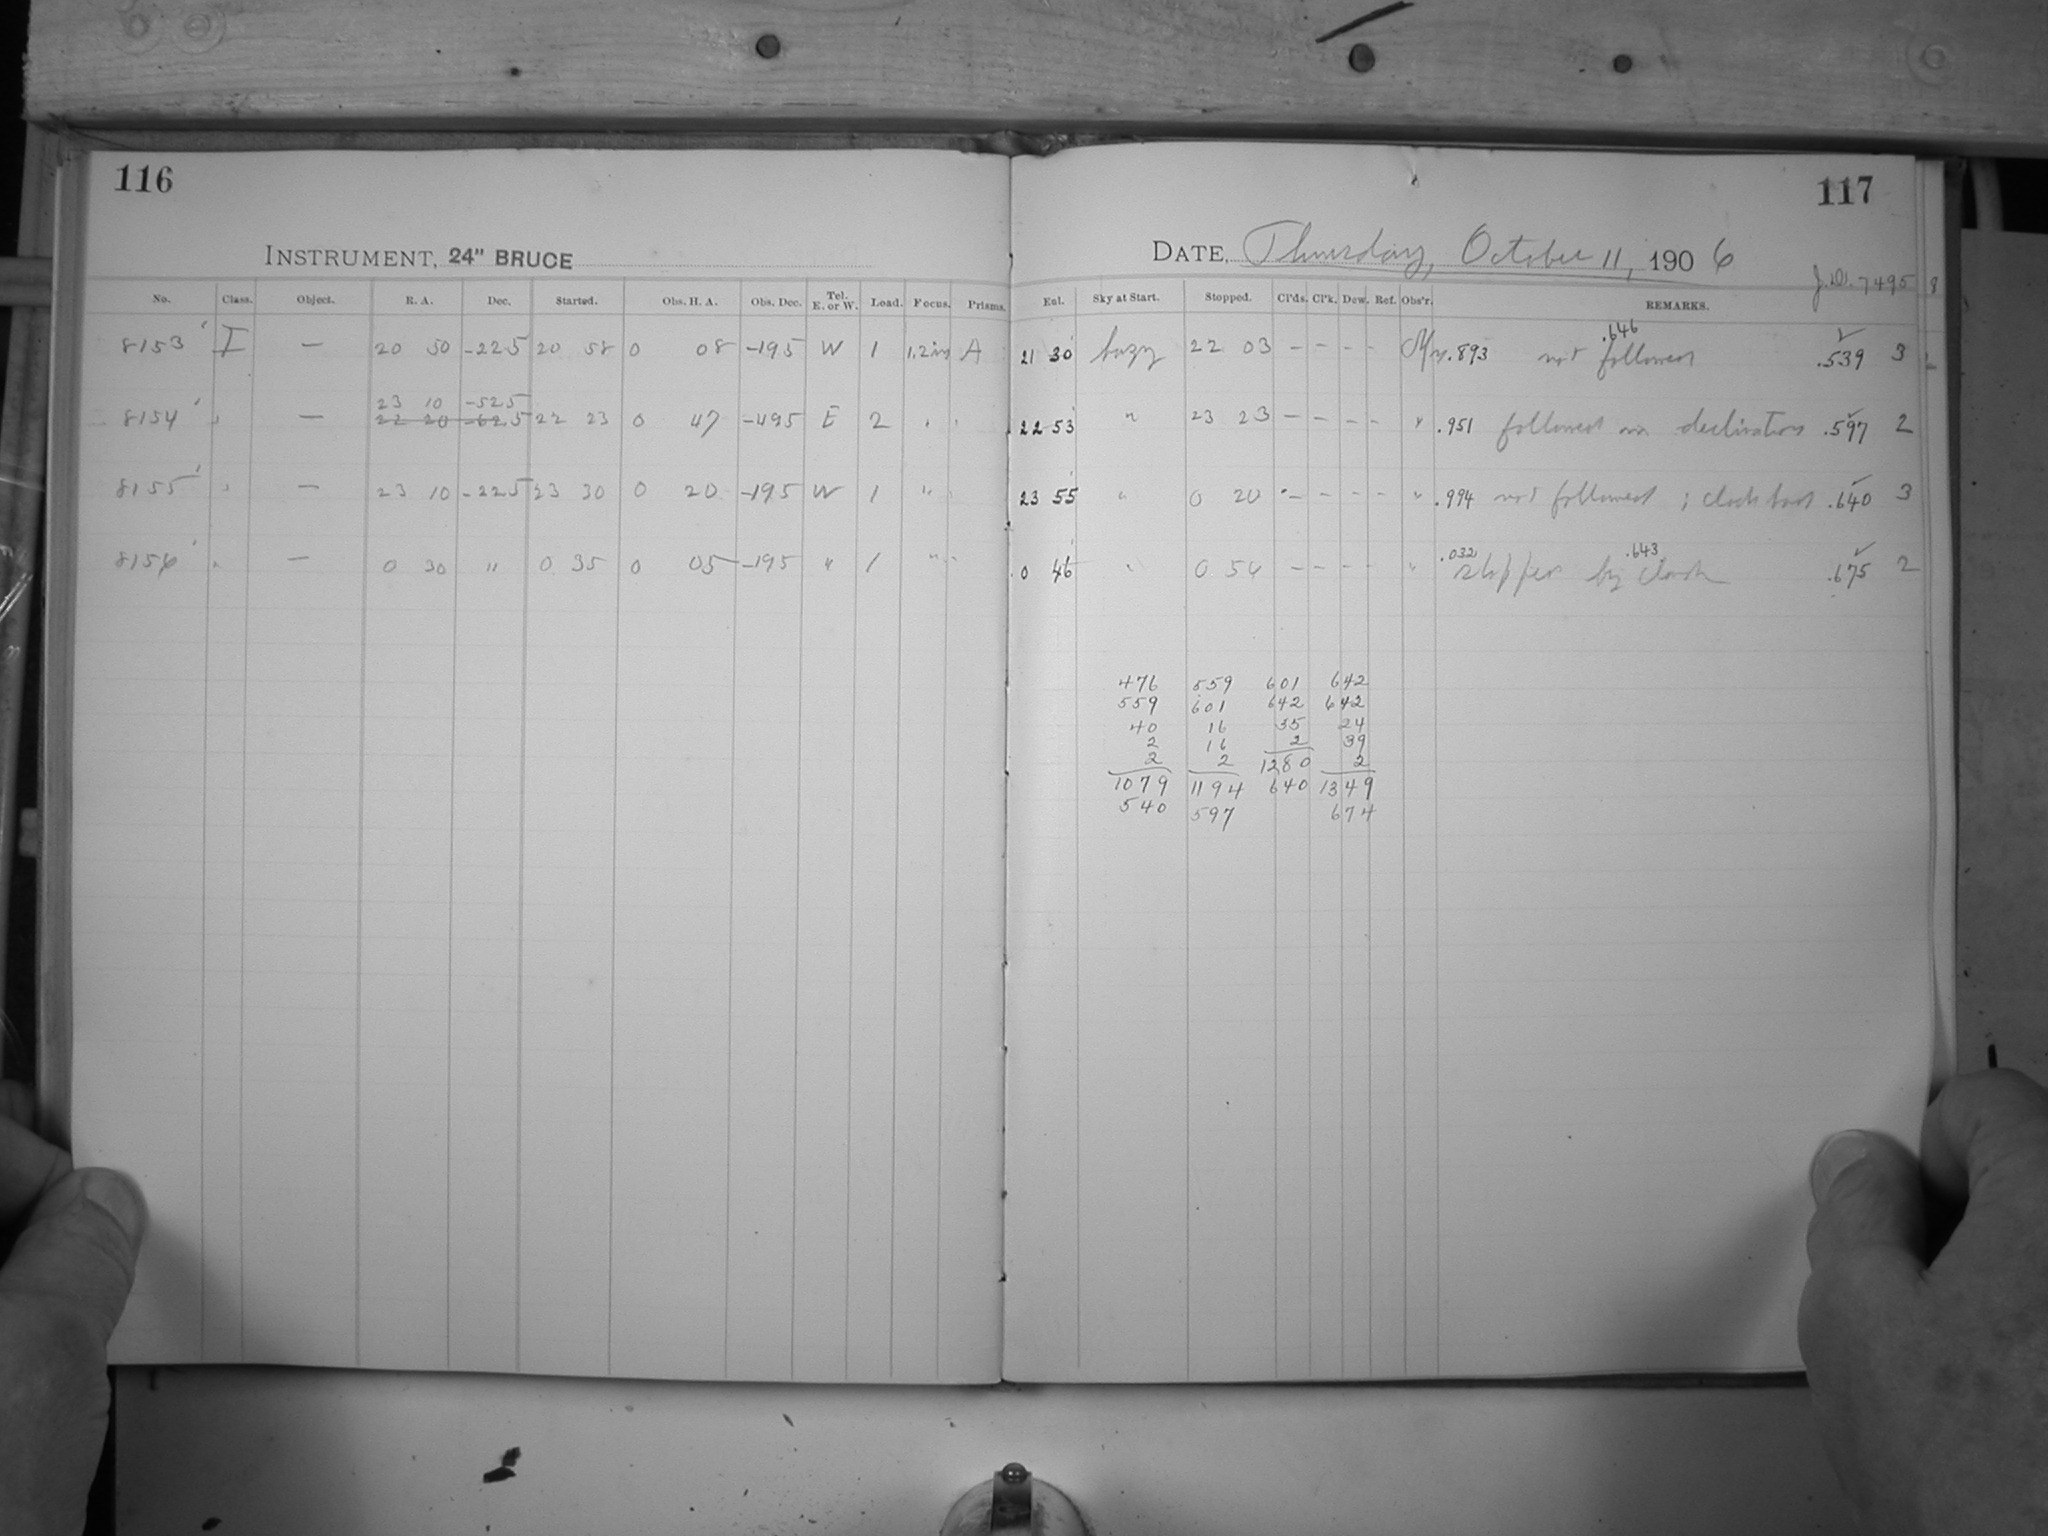 116
INSTRUMENT, 24" BRUCE
No. Class. Object. R. A. Dec. Started. Obs. H. A. Obs. Dec. Tel. E. or W. Load. Focus. Prisms.
8153 I — 20 50 -22.5 20 58 0 08 -19.5 W 1 A
23 10 -52.5
8154 — 22 20 -62.5 22 23 0 47 -49.5 E 2
8155 — 23 10 -22.5 23 30 0 20 -19.5 W 1 "
8156 — 0 30 " 0 35 0 05 -19.5 " 1 "
117
DATE, Thursday, October 11, 1906
J.D. 7495
Sky at Start. Stopped. Cl'ds. Cl'k. Dew. Ref. Obs'r. REMARKS.
.646
21 30 hazy 22 03 – – – – .893 not followed .539 3
22 53 " 23 23 – – – – " .951 followed in declination .597 2
23 55 " 0 20 – – – – " .994 not followed ; clock bad .640 3
.032 .643
0 46 " 0 54 – – – – " stopped by clouds .675 2
476 559 601 642
559 601 642 642
40 16 35 24
2 16 2 39
2 2 1280 2
1079 1194 640 1349
540 597 674